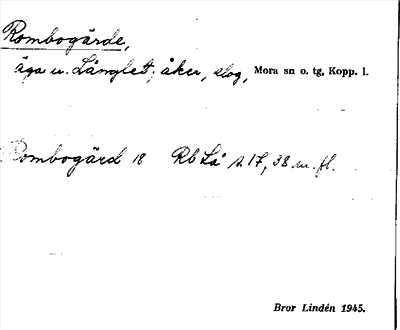 Rombogärde,
äga u. Långlet; åker, slog, Mora sn o. tg, Kopp. l.
Rombogärd 18 Rb Lå s. 17, 38 m. fl.
Bror Lindén 1945.